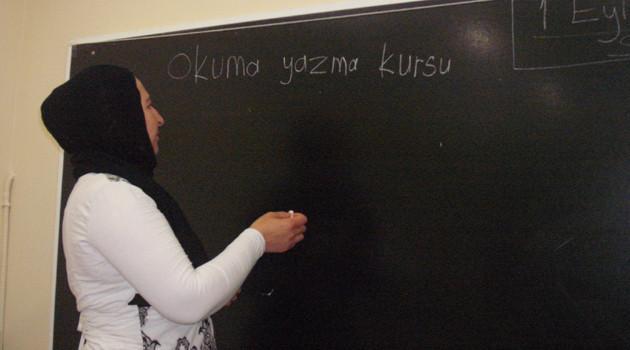 Okuma yazma kursu
1 Eyl